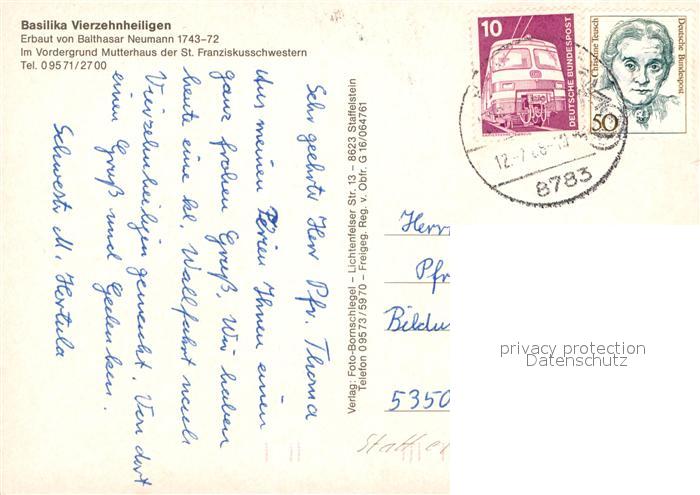 Basilika Vierzehnheiligen
Erbaut von Balthasar Neumann 1743–72
Im Vordergrund Mutterhaus der St. Franziskusschwestern
Tel. 09571/2700
Sehr geehrter Herr Pfr. Thoma
Aus meinen Ferien Ihnen einen
ganz frohen Gruß. Wir haben
heute eine kl. Wallfahrt nach
Vierzehnheiligen gemacht. Von dort
einen Gruß und Gedenken.
Schwester M. Hertula
Verlag: Foto-Bornschlegel – Lichtenfelser Str. 13 – 8623 Staffelstein
Telefon 09573/5970 – Freigeg. Reg. v. Obfr. G 16/064/61
10
DEUTSCHE BUNDESPOST
Christine Teusch
Deutsche Bundespost
50
8783
Herr
Pfr
Bildu
5350
privacy protection
Datenschutz